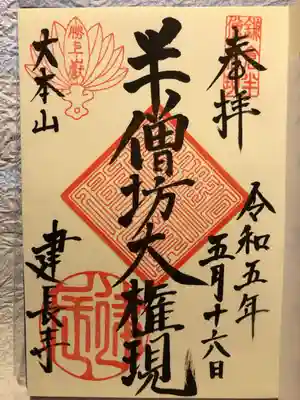 奉拝
令和五年
五月十六日
半僧坊大権現
大本山
建長寺